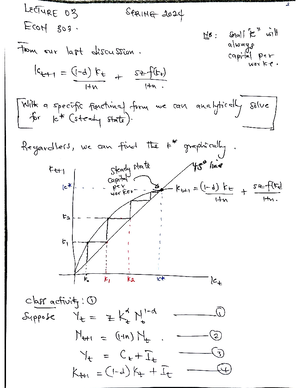 LECTURE 03 SPRING 2024
ECON 803
NB: Small k* will always capital per worker.
From our last discussion.
k_{t+1} = (1-d) k_t / 1+n + sz f(k_t) / 1+n.
With a specific functional form we can analytically solve for k* (steady state).
Regardless, we can find the k* graphically.
k_{t+1}
steady state capital per worker
45° line
k_{t+1} = (1-d) k_t / 1+n + sz f(k_t) / 1+n.
k*
k_2
k_1
k_0 k_1 k_2 k* k_t
Class activity: ①
Suppose Y_t = z K_t^α N_t^{1-α} ①
N_{t+1} = (1+n) N_t ②
Y_t = C_t + I_t ③
K_{t+1} = (1-d) K_t + I_t ④